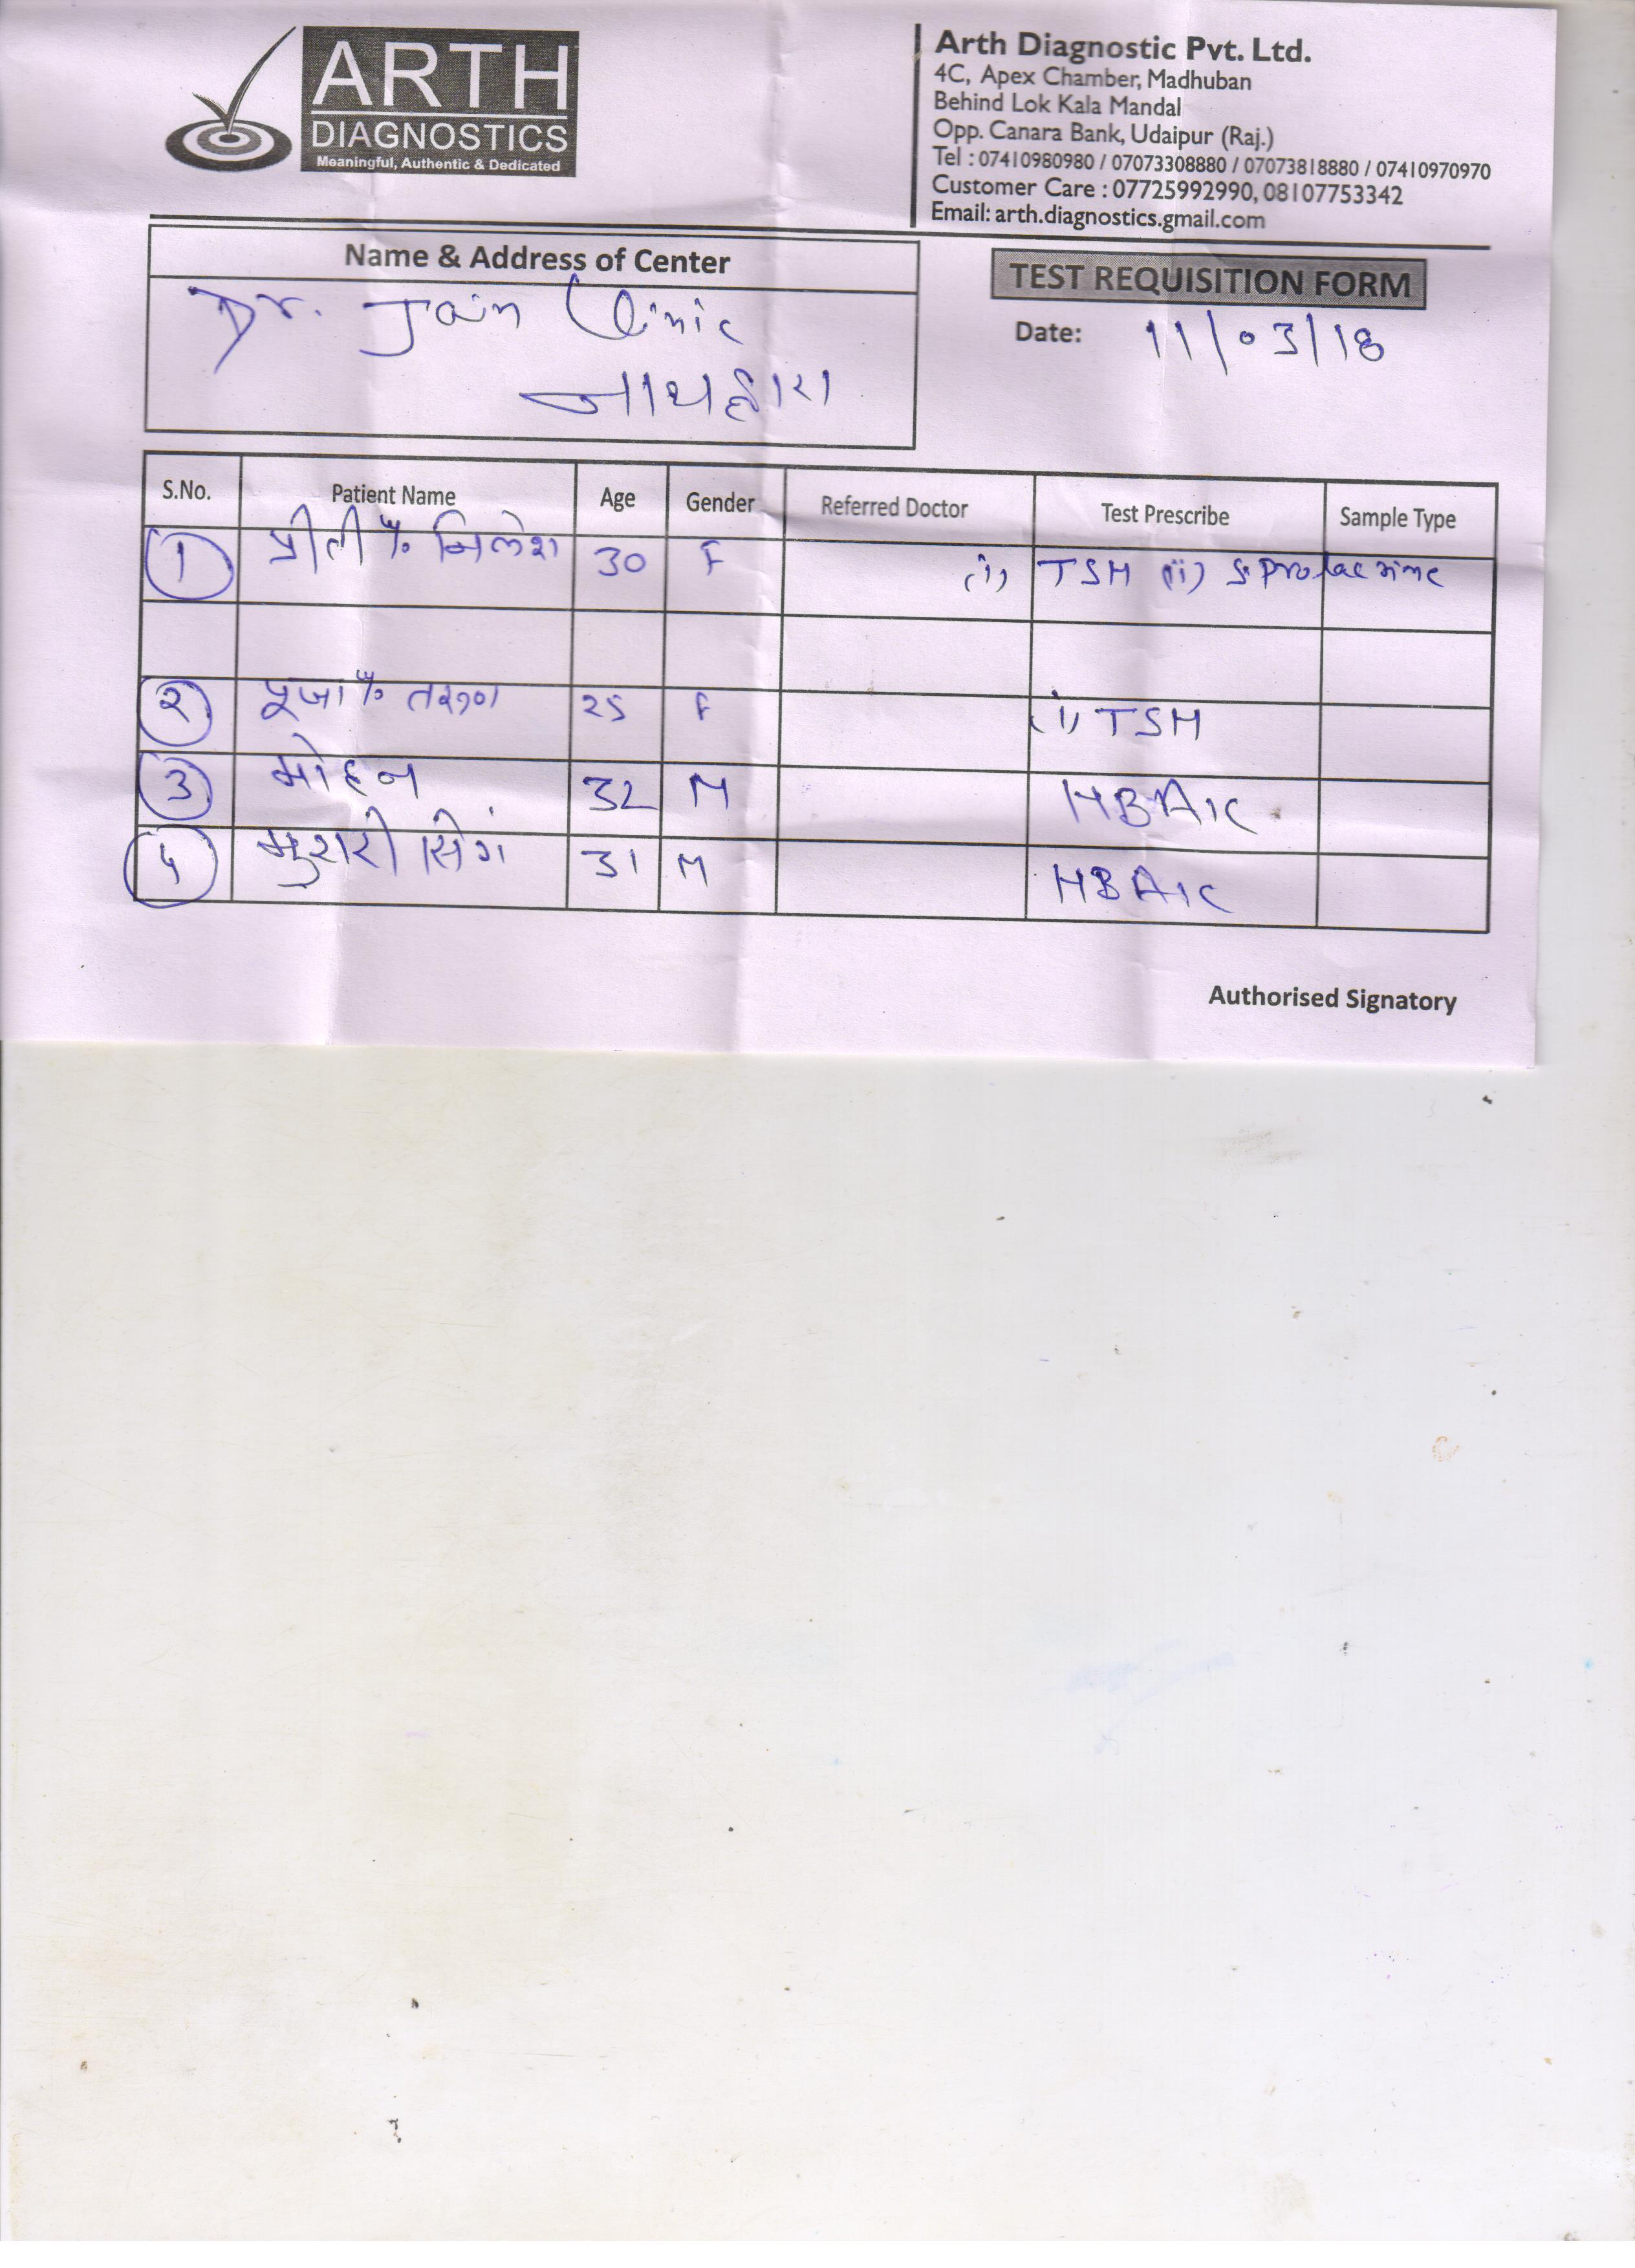 ARTH
DIAGNOSTICS
Meaningful, Authentic & Dedicated
Arth Diagnostic Pvt. Ltd.
4C, Apex Chamber, Madhuban
Behind Lok Kala Mandal
Opp. Canara Bank, Udaipur (Raj.)
Tel : 07410980980 / 07073308880 / 07073818880 / 07410970970
Customer Care : 07725992990, 08107753342
Email: arth.diagnostics.gmail.com
Name & Address of Center
Dr. Jain Clinic
नाथद्वारा
TEST REQUISITION FORM
Date: 11/03/18
S.No. Patient Name Age Gender Referred Doctor Test Prescribe Sample Type
1 प्रीती w/o निलेश 30 F (i) TSH (ii) S. prolactine
2 पूजा w/o तरुण 25 F (i) TSH
3 मोहन 32 M HBA1C
4 मुरारी सिंग 31 M HBA1C
Authorised Signatory